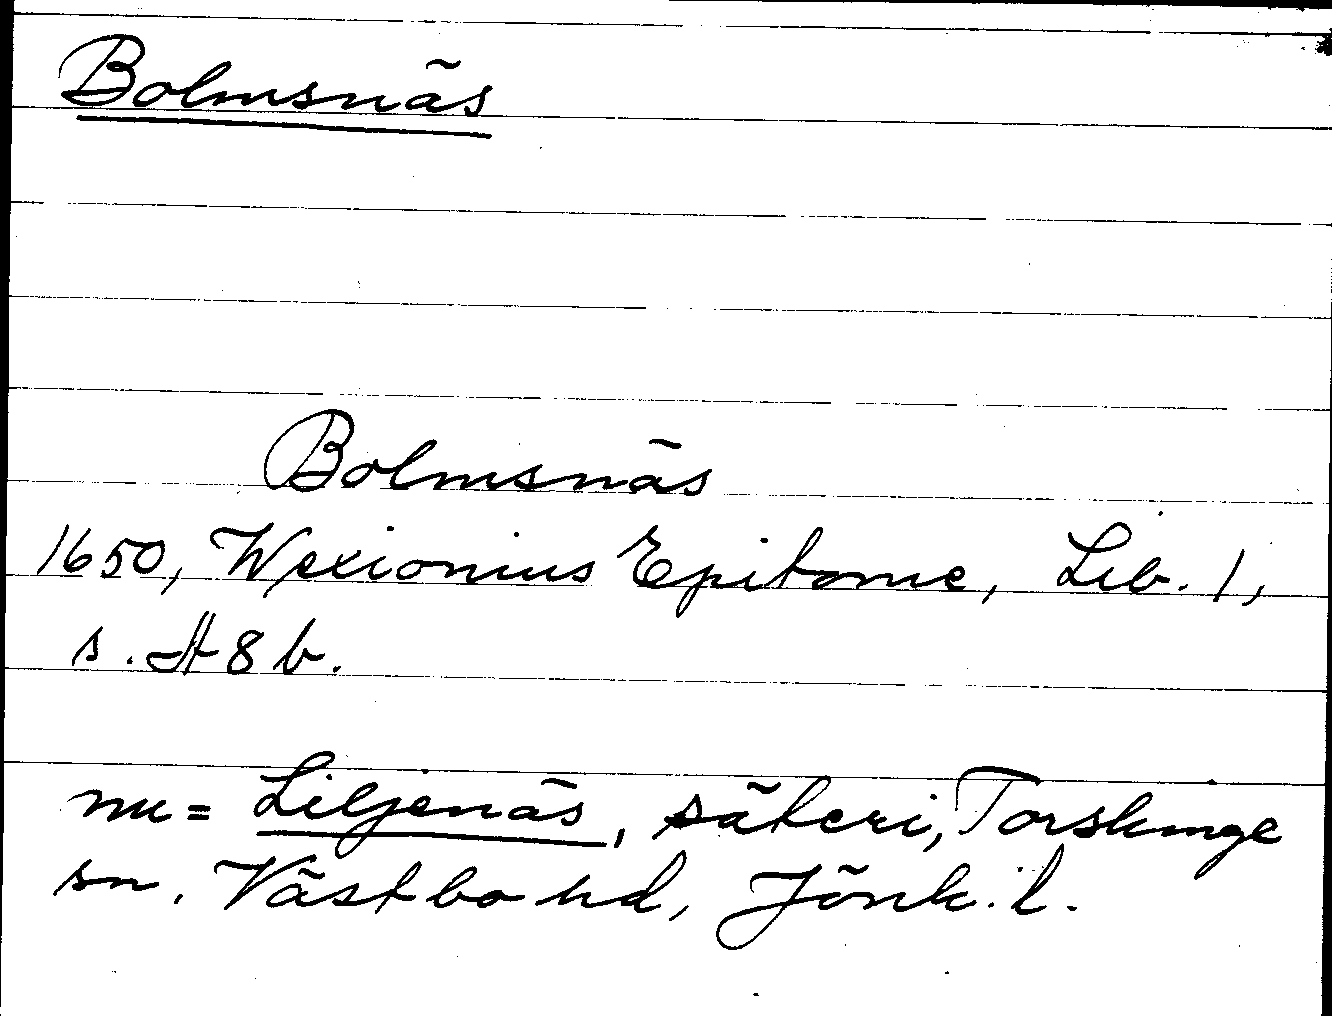 Bolmsnäs
Bolmsnäs
1650, Wexionius Epitome, Lib. 1,
s. A 8 b.
nu = Liljenäs, säteri, Torskinge
sn. Västbo hd, Jönk. l.